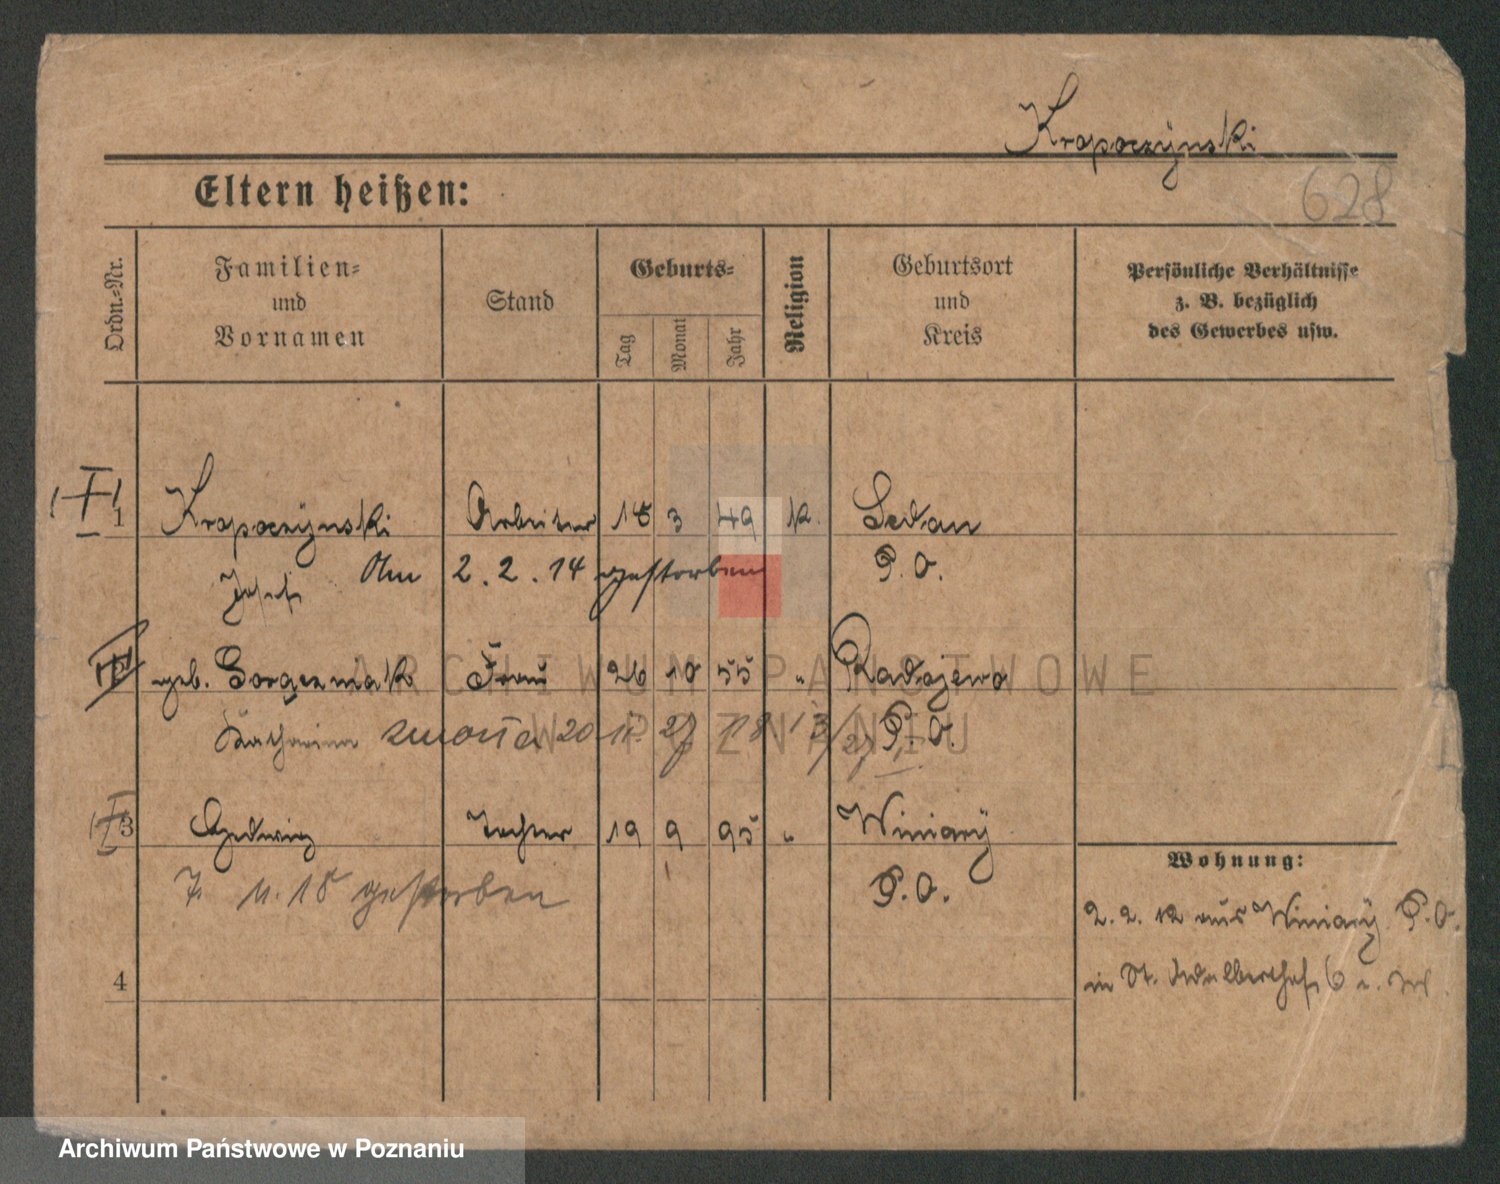 Kropaczÿnski
628
Eltern heißen:
Ordn.-Nr.
Familien-
und
Vornamen
Stand
Geburts-
Tag
Monat
Jahr
Religion
Geburtsort
und
Kreis
Persönliche Verhältnisse
z. B. bezüglich
des Gewerbes usw.
1 Kropaczÿnski Arbeiter 18 3 49 K. Sedan
Josef Am 2.2.14 gestorben P.O.
geb. Gorczmak Frau 26 10 55 " Radojewo
Katharina zmarła 20 11. 27 P.O.
3 Hedwig Tochter 19 9 95 " Winiarÿ
7. 11. 18 gestorben P.O.
Wohnung:
2. 2. 12 aus Winiarÿ P.O.
in St. Adalbertstr 6
4
ARCHIWUM PAŃSTWOWE
W POZNANIU
Archiwum Państwowe w Poznaniu